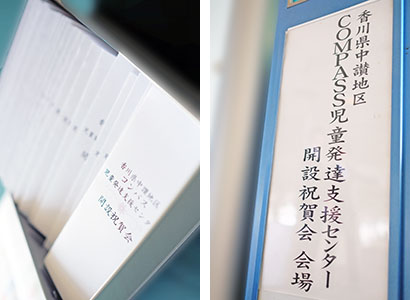 香川県中讃地区
コンパス
児童発達支援センター
開設祝賀会
香川県中讃地区
COMPASS児童発達支援センター
開設祝賀会 会場